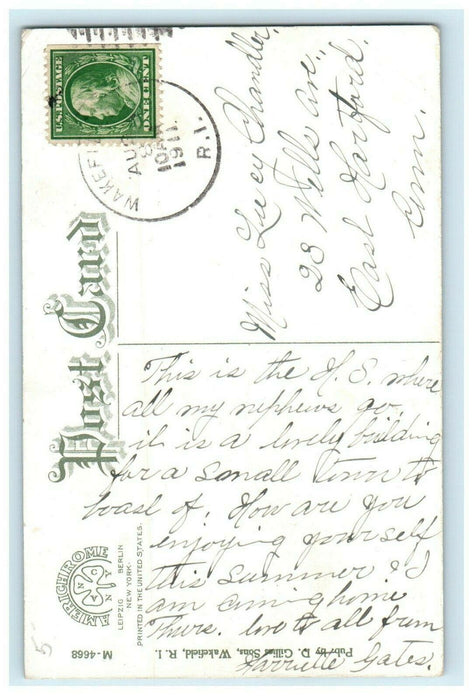 U.S. POSTAGE
ONE CENT
WAKEFI
AUG
1911
R.I.
Post Card
Miss Lucy Chandler,
28 Wells Ave.,
East Hartford,
Conn.
This is the H. S. where
all my nephews go,
it is a lovely building
for a small town to
boast of. How are you
enjoying yourself
this summer
am coming home
Thurs. love to all from
Harriette Gates.
AMERICHROME
LEIPZIG BERLIN
NEW-YORK.
PRINTED IN THE UNITED STATES.
M-4668
Pub. by D. Gillies Sons, Wakefield, R. I.
5